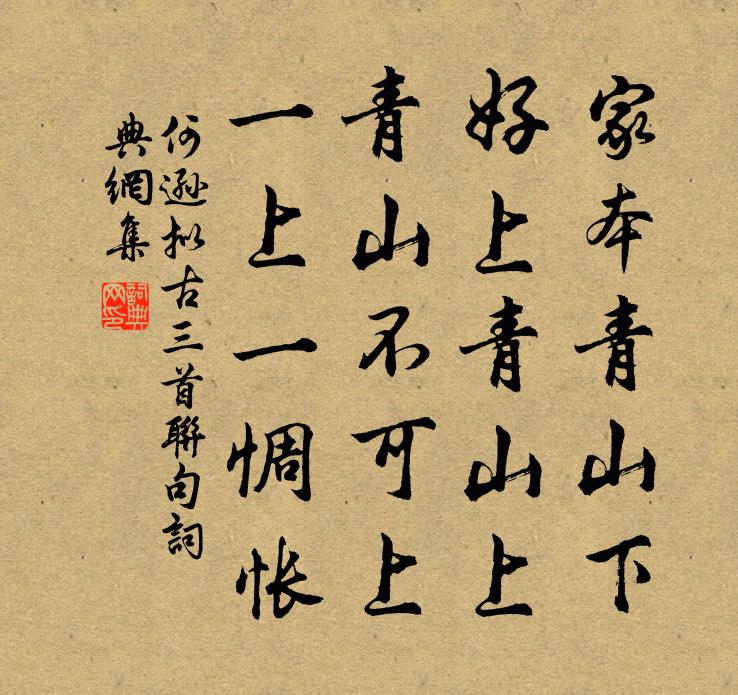 家本青山下
好上青山上
青山不可上
一上一惆怅
何遜拟古三首聯句詞
典網集
詞典
网印